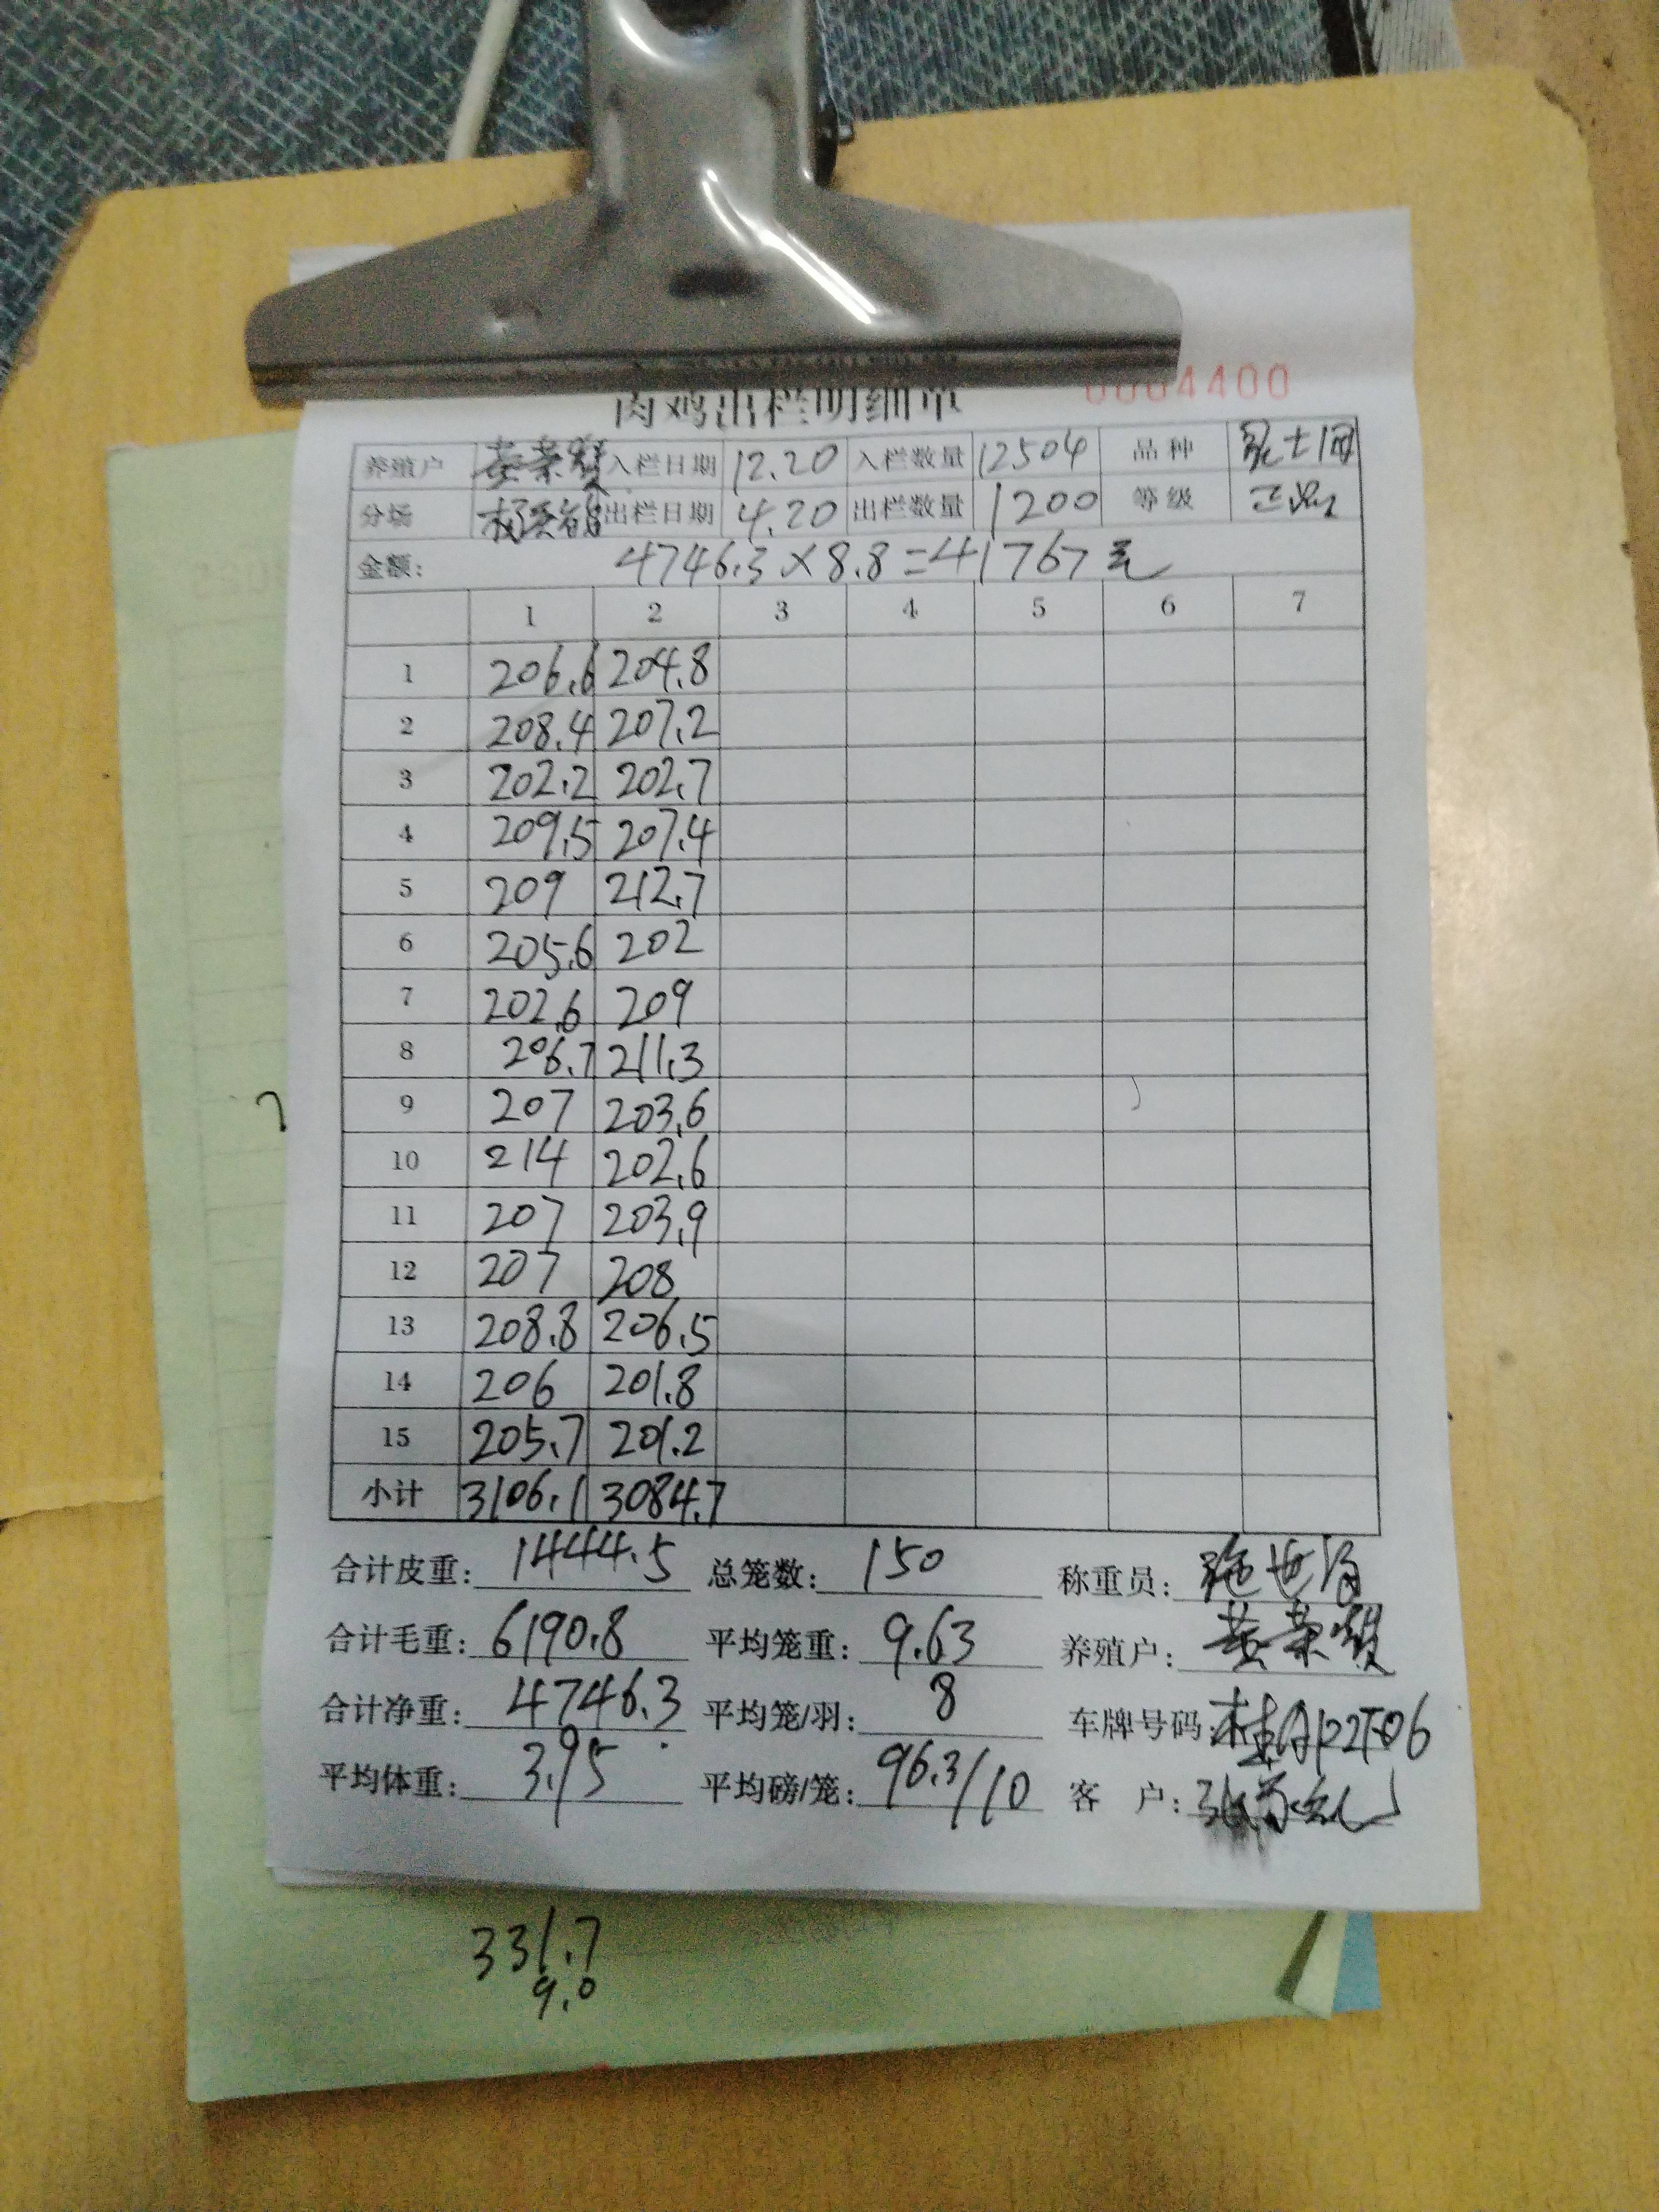 肉鸡出栏明细单 0004400
养殖户 入栏日期 12.20 入栏数量 12504 品种
分场 出栏日期 4.20 出栏数量 1200 等级
金额: 4746.3×8.8=41767元
1 2 3 4 5 6 7
1 206.6 204.8
2 208.4 207.2
3 202.2 202.7
4 209.5 207.4
5 209 212.7
6 205.6 202
7 202.6 209
8 206.7 211.3
9 207 203.6
10 214 202.6
11 207 203.9
12 207 208
13 208.8 206.5
14 206 201.8
15 205.7 201.2
小计 3106.1 3084.7
合计皮重: 1444.5 总笼数: 150 称重员:
合计毛重: 6190.8 平均笼重: 9.63 养殖户:
合计净重: 4746.3 平均笼/羽: 8 车牌号码:
平均体重: 3.95 平均磅/笼: 96.3/10 客 户:
331.7
9.0